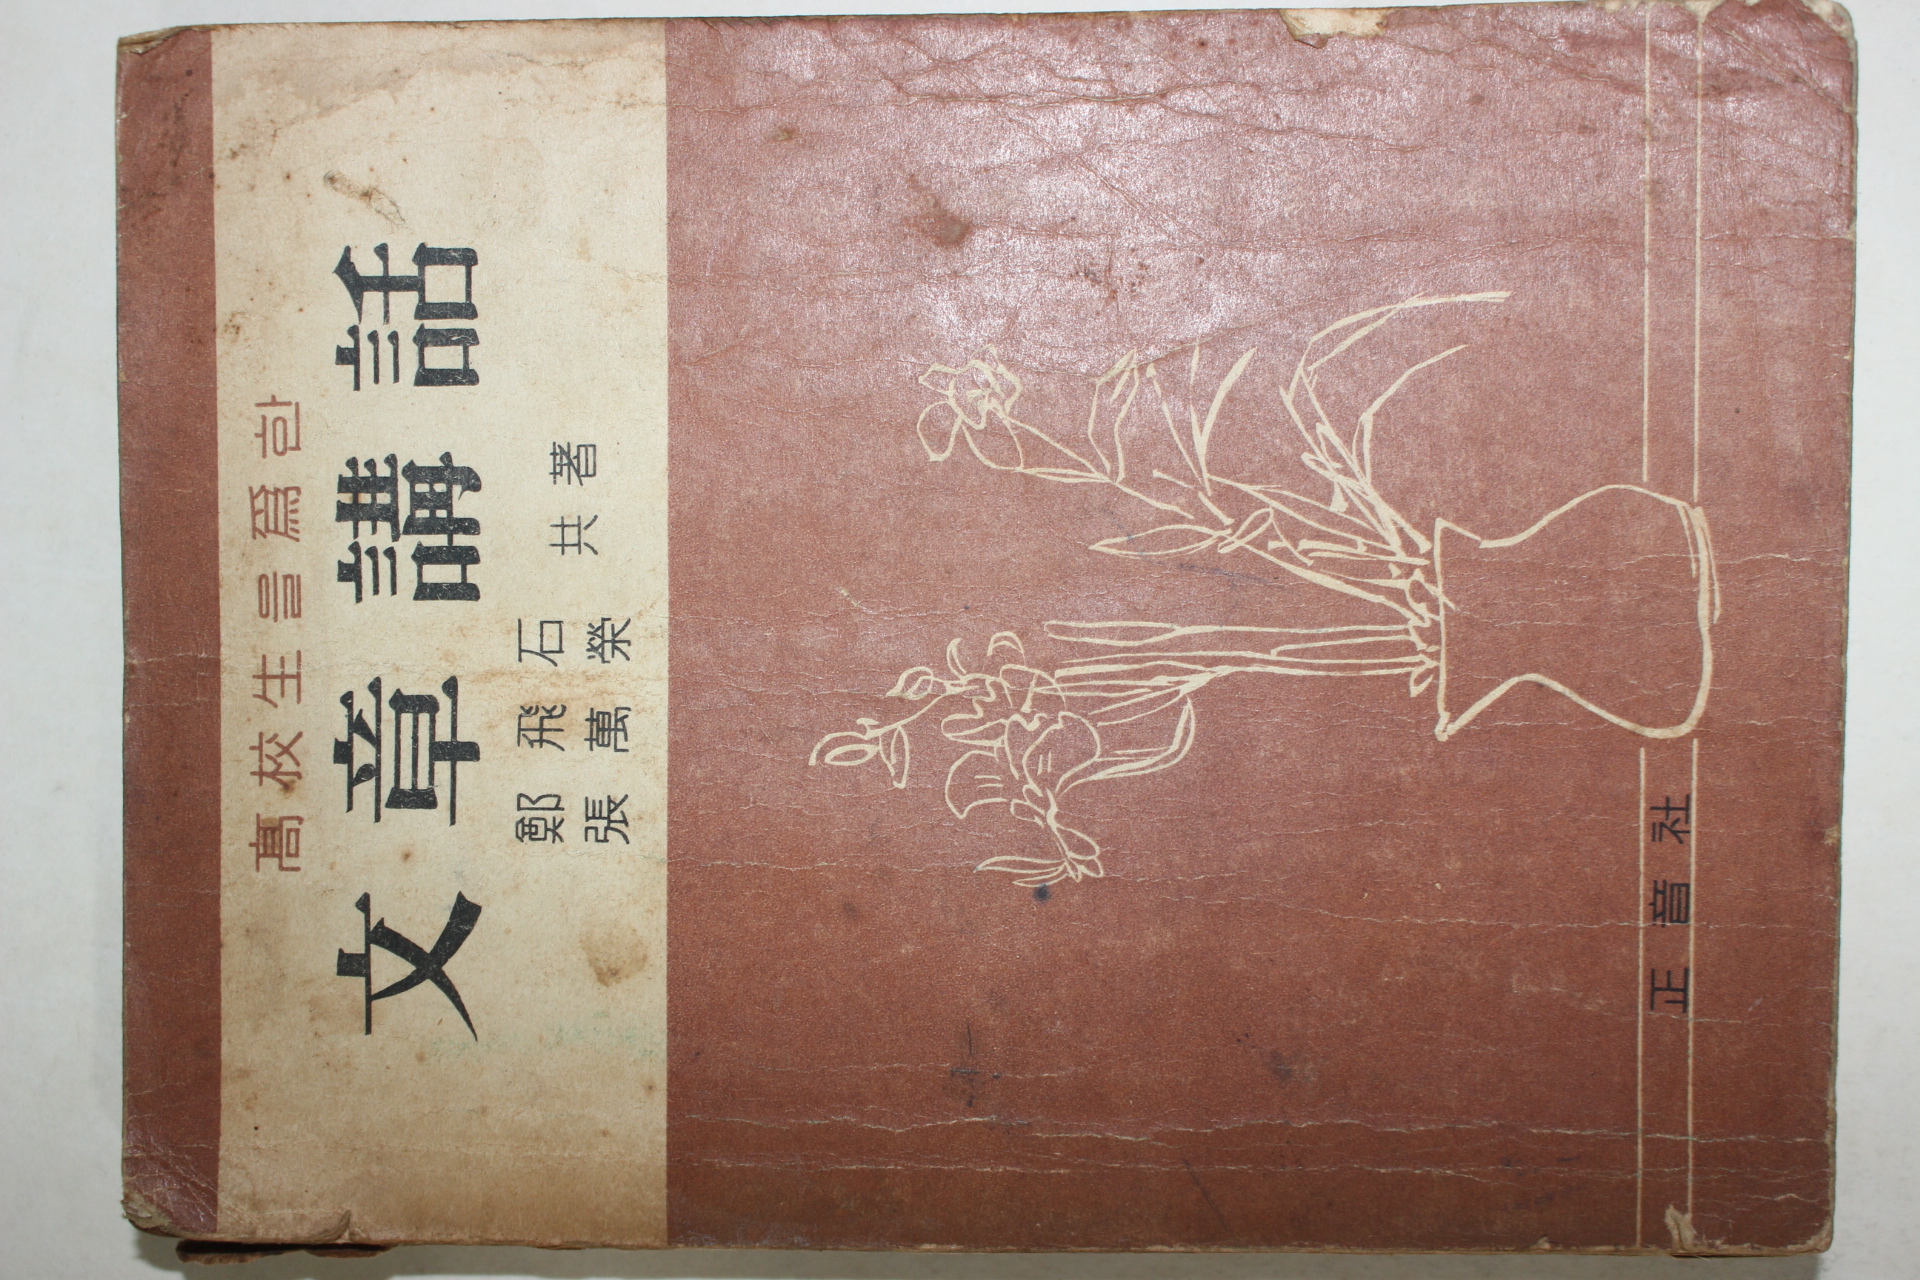 高校生을爲한
文章講話
鄭飛石
張萬榮
共著
正音社